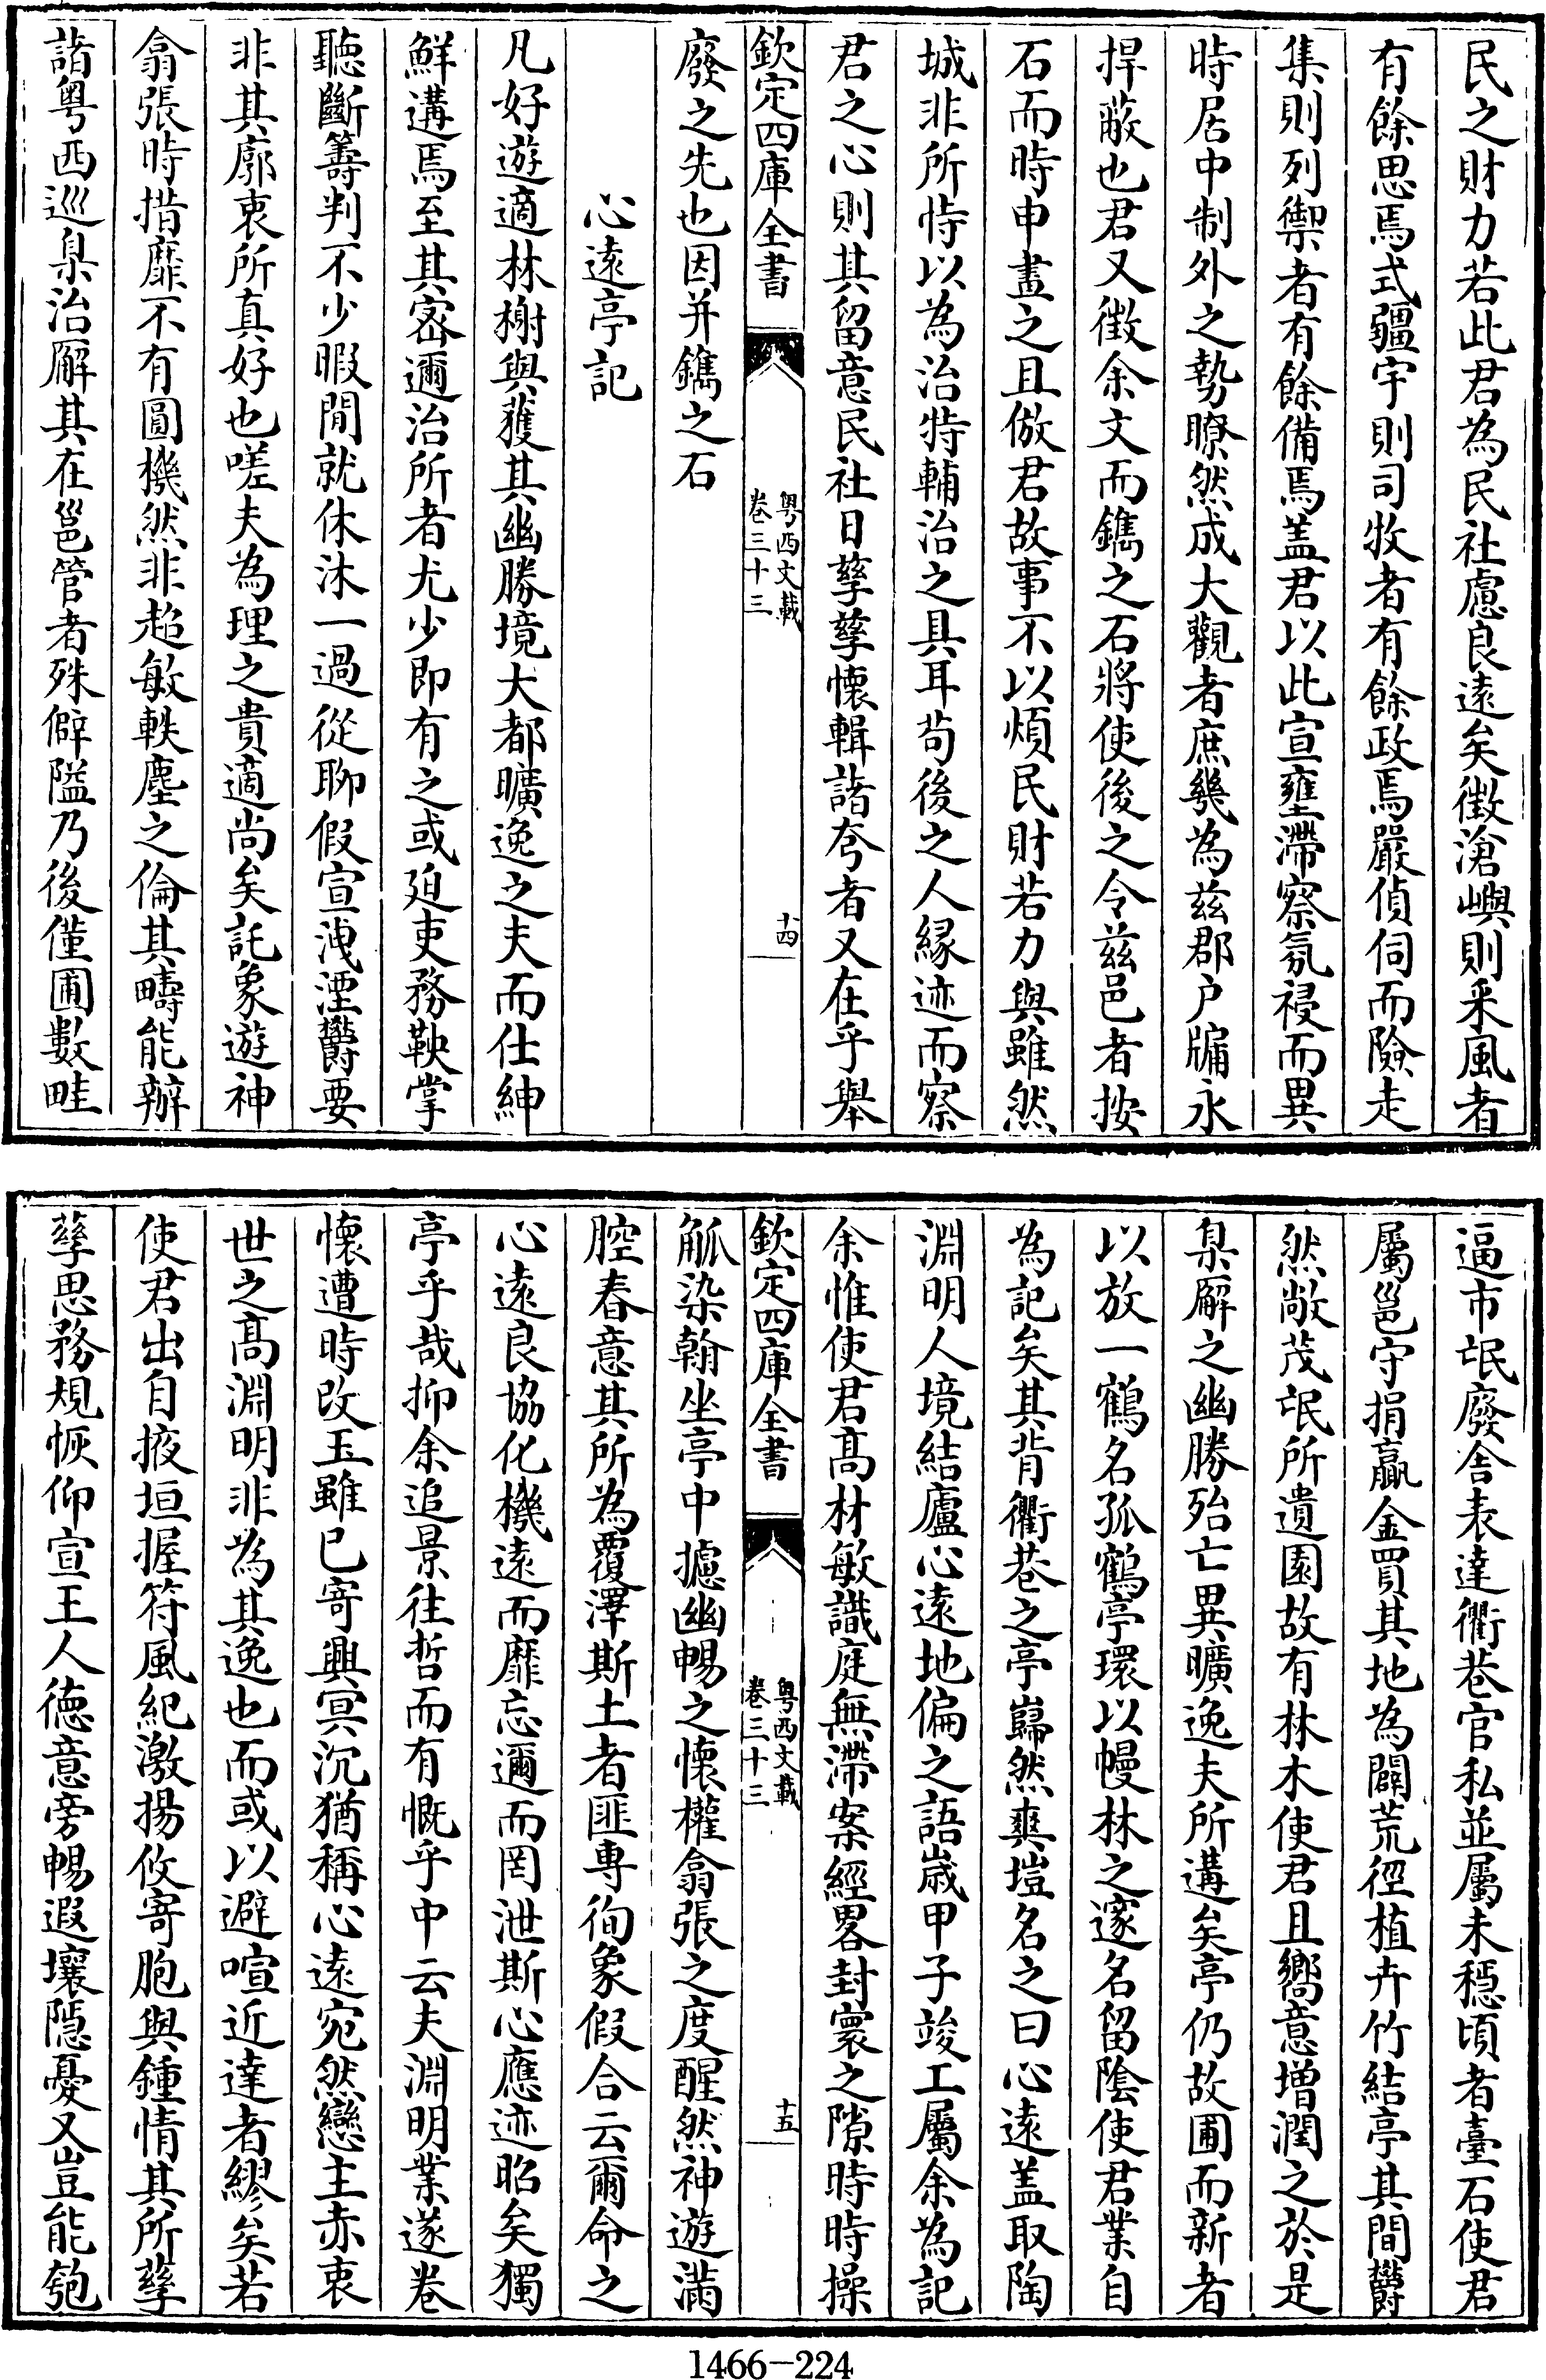 民之財力若此君為民社慮良遠矣徵滄嶼則采風者
有餘思焉式疆宇則司牧者有餘政焉嚴偵伺而險走
集則列禦者有餘備焉盖君以此宣壅滯察氛祲而異
時居中制外之勢瞭然成大觀者庶幾為兹郡户牖永
捍蔽也君又徵余文而鐫之石將使後之令兹邑者按
石而時申畫之且倣君故事不以煩民財若力與雖然
城非所恃以為治特輔治之具耳苟後之人縁迹而察
君之心則其留意民社日孳孳懷輯諸夸者又在乎舉
欽定四庫全書
粤西文載
卷三十三
十四
廢之先也因并鐫之石
心遠亭記
凡好遊適林榭與獲其幽勝境大都曠逸之夫而仕紳
鮮遘焉至其宻邇治所者尤少即有之或廹吏務鞅掌
聽斷籌判不少暇間就休沐一過從聊假宣洩湮欝要
非其廓衷所真好也嗟夫為理之貴適尚矣託象遊神
翕張時措靡不有圓機然非超敏軼塵之倫其疇能辦
諸粤西廵臬治廨其在邕管者殊僻隘乃後僅圃數畦
逼市氓廢舍表達衢巷官私並屬未穩頃者臺石使君
屬邕守捐贏金買其地為闢荒徑植卉竹結亭其間欝
然敞茂氓所遺園故有林木使君且嚮意增潤之於是
臬廨之幽勝殆亡異曠逸夫所遘矣亭仍故圃而新者
以放一鶴名孤鶴亭環以幔林之邃名留隂使君業自
為記矣其背衢巷之亭巋然爽塏名之曰心遠盖取陶
淵明人境結廬心遠地偏之語嵗甲子竣工屬余為記
余惟使君髙材敏識庭無滯案經畧封寰之隙時時操
欽定四庫全書
粤西文載
卷三十三
十五
觚染翰坐亭中攄幽暢之懷權翕張之度醒然神遊滿
腔春意其所為覆澤斯土者匪專徇象假合云爾命之
心遠良協化機遠而靡忘邇而罔泄斯心應迹昭矣獨
亭乎哉抑余追景往哲而有慨乎中云夫淵明業遂卷
懷遭時改玉雖已寄興冥沉猶稱心遠宛然戀主赤衷
世之髙淵明非為其逸也而或以避喧近達者繆矣若
使君出自掖垣握符風紀激揚攸寄胞與鍾情其所孳
孳思務規恢仰宣王人德意旁暢遐壤隠憂又豈能匏
1466-224